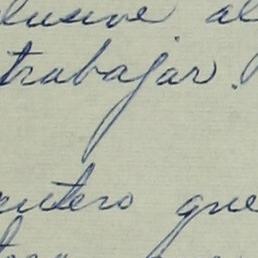 clusive al
trabajar.
entero que